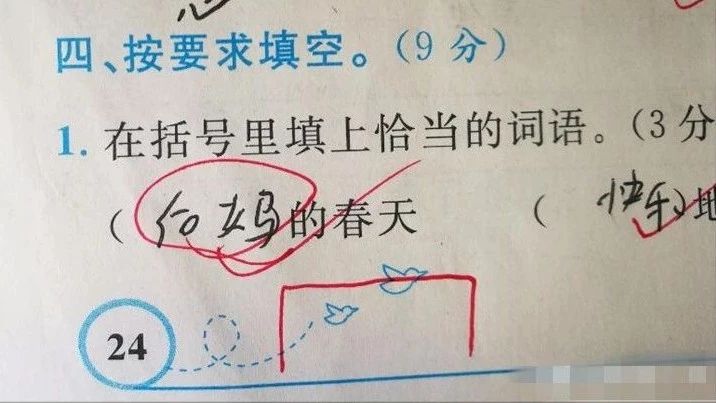 四、按要求填空。(9 分)
1. 在括号里填上恰当的词语。(3 分
( 后妈的春天 ( 快乐)地
24